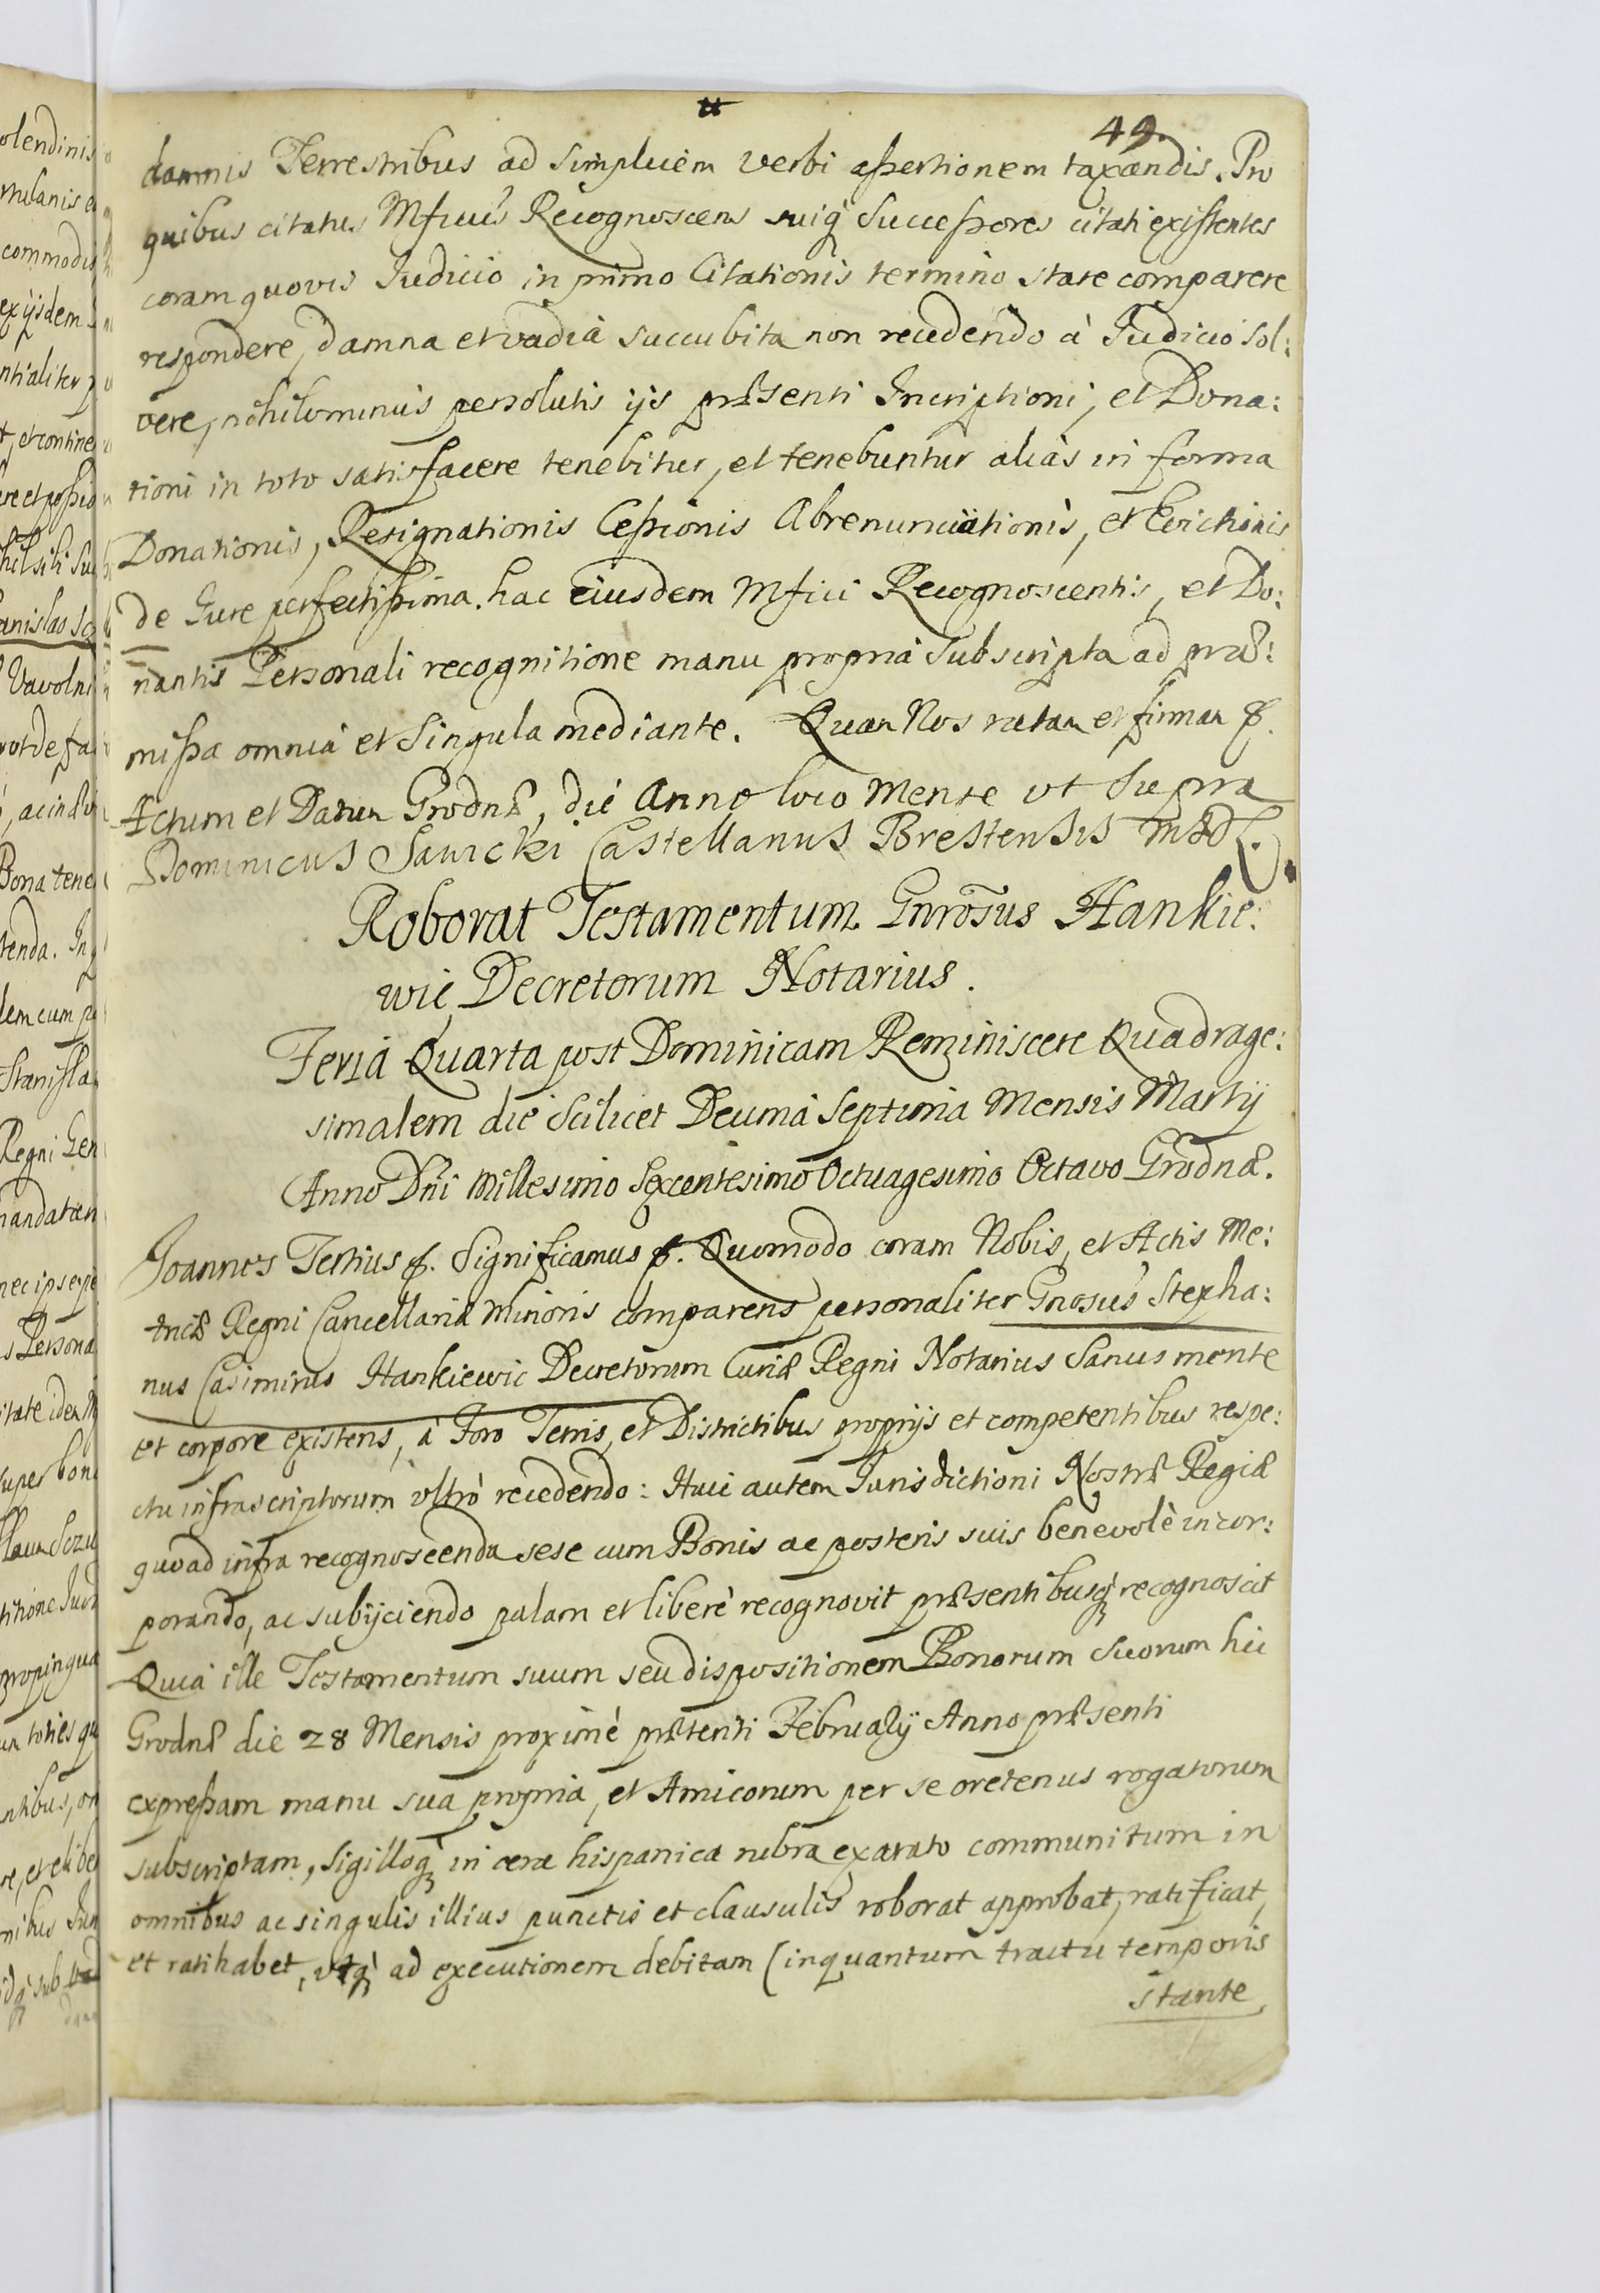 49.
damnis Terrestribus ad simplicem verbi assertionem taxandis. Pro
quibus citatus Mficus Recognoscens suiq successores citati existentes
coram quovis Iudicio in primo Citationis termino stare comparere
respondere, damna et vadia succubita non recedendo à Iudicio sol:
vere, nihilominus persolutis ijs præsenti Inscriptioni, et Dona:
tioni in toto satisfacere tenebitur, et tenebuntur aliàs in forma
Donationis, Resignationis Cessionis Abrenunciationis, et Evictionis
de Iure perfectissima. hac eiusdem Mfici Recognoscentis, et Do:
nantis Personali recognitione manu propria subscripta ad præ:
missa omnia et singula mediante. Quam Nos ratam et firmam &.
Actum et Datum Grodnæ, die Anno loco Mense ut supra
Dominicus Sawicki Castellanus Brestensis
Roborat Testamentum Gnrosus Hankie:
wic Decretorum Notarius.
Feria Quarta post Dominicam Reminiscere Quadrage:
simalem die scilicet Decima Septima Mensis Martij
Anno Dni Millesimo Sexcentesimo Octuagesimo Octavo Grodnæ.
Joannes Tertius &. Significamus &. Quomodo coram Nobis, et Actis Me:
tricæ Regni Cancellariæ Minoris comparens personaliter Gnosus Stepha:
nus Casimirus Hankiewic Decretorum Curiæ Regni Notarius Sanus mente
et corpore existens, à Foro Terris, et Districtibus proprijs et competentibus respe:
ctu infrascriptorum ultrò recedendo: Huic autem Iurisdictioni Nostræ Regiæ
quoad infra recognoscenda sese cum Bonis ac posteris suis benevolè incor:
porando, ac subijciendo palam et liberè recognovit præsentibusq recognoscit
Quia ille Testamentum suum seu dispositionem Bonorum suorum hic
Grodnæ die 28 Mensis proximè præteriti Februarij Anno præsenti
expressam manu sua propria, et Amicorum per se oretenus rogatorum
subscriptam, sigilloq in cera hispanica rubra exarato communitum in
omnibus ac singulis illius punctis et clausulis roborat approbat, ratificat,
et ratihabet, utq ad executionem debitam (inquantum tractu temporis
stante